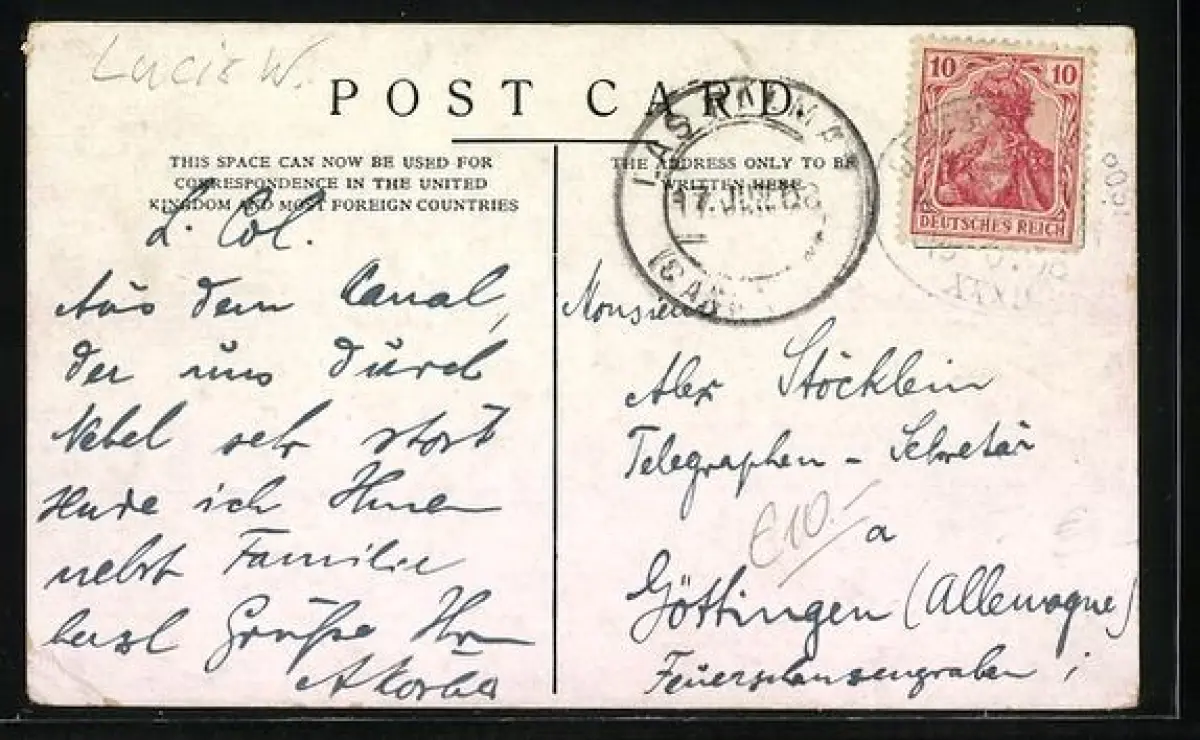 Lucie W.
POST CARD
THIS SPACE CAN NOW BE USED FOR
CORRESPONDENCE IN THE UNITED
KINGDOM AND MOST FOREIGN COUNTRIES
THE ADDRESS ONLY TO BE
WRITTEN HERE
LAS PALMAS
17 JUN 08
10 10
DEUTSCHES REICH
XXXI
L. Col.
Aus dem Canal,
der uns durch
Nebel sehr stört
sende ich Ihnen
nebst Familie
herzl Grüße Ihr
Monsieur
Alex Stöcklein
Telegraphen - Sekretär
€10.-
a
Göttingen (Allemagne)
Feuerschanzengraben